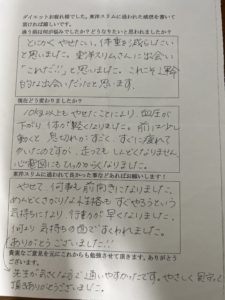 ダイエットお疲れ様でした。東洋スリムに通われた感想を書いて
頂ければ嬉しいです。
通う前は何が悩みでしたか?どうなりたいと思われましたか?
とにかくやせたい、体重を減らしたい
と思いました。東洋スリムさんに出会い
"これだ!!"と思いました。これこそ運命
的な出会いだったと思います。
現在どう変わりましたか?
10kg以上もやせたことにより、血圧が
下がり体が軽くなりました。前は少し
動くと息切れがすごく、すぐに疲れて
いたのですが、あってもしんどくなりません
心電図にもひっかからなくなりました。
東洋スリムに通われて良かった事などあればお願いします!
やせて、何事も前向きになりました。
めんどくさがりな性格もすぐやろうという
気持ちになり、行動が早くなりました。
何より気持ちの面ですくわれました。
ありがとうございました!!
貴重なご意見を元にこれからも勉強させて頂きます。ありがとう
ございます。
先生が気さくな方で通いやすかったです。やさしく見守って
頂きありがとうございました。